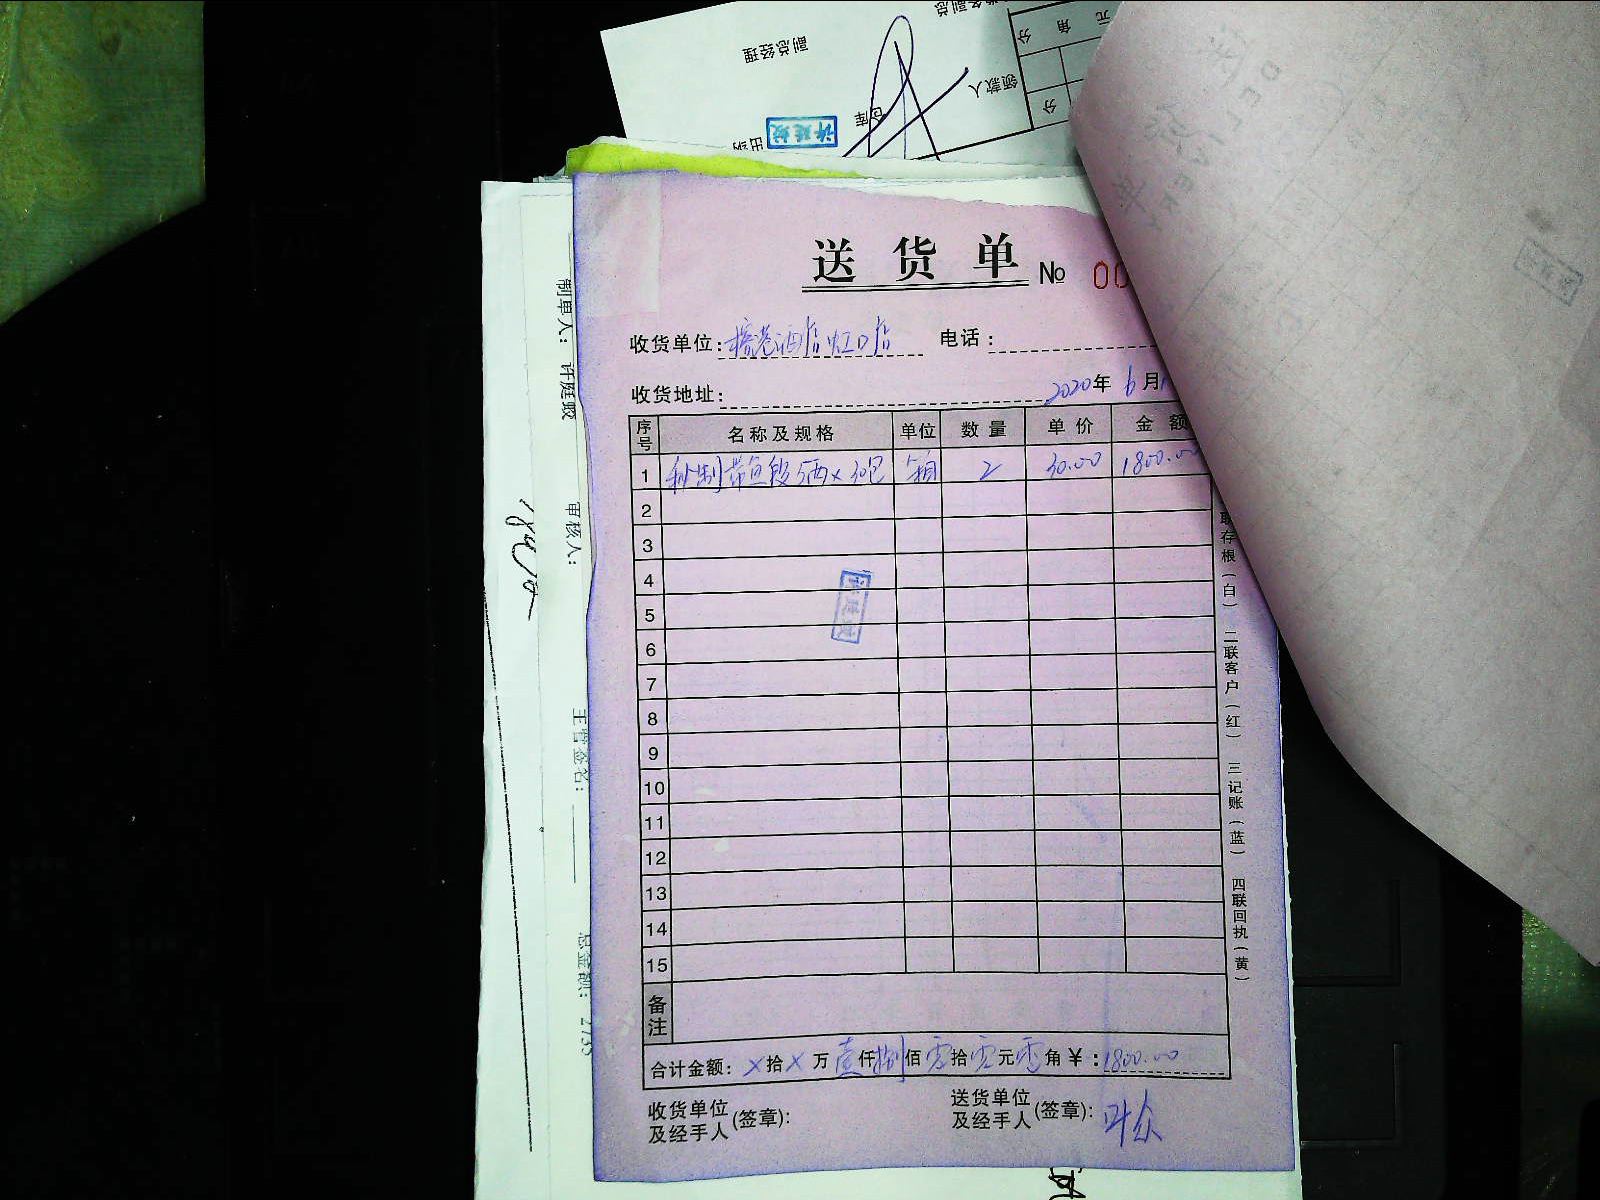 副总经理
领款人
仓库
出纳
元 角 分
分
送货单 № 00
收货单位: 酒店虹口店 电话:
收货地址:
2020年 6月
序号 名称及规格 单位 数量 单价 金额
1 秘制带鱼段5两×30包 箱 2 30.00 1800.00
2
3
4
5
6
7
8
9
10
11
12
13
14
15
备注
合计金额: ×拾×万壹仟捌佰零拾零元零角¥:1800.00
收货单位及经手人(签章):
送货单位及经手人(签章): 叶众
联存根(白) 二联客户(红) 三记账(蓝) 四联回执(黄)
制单人: 许庭
审核人:
主管签名:
总金额: 2735